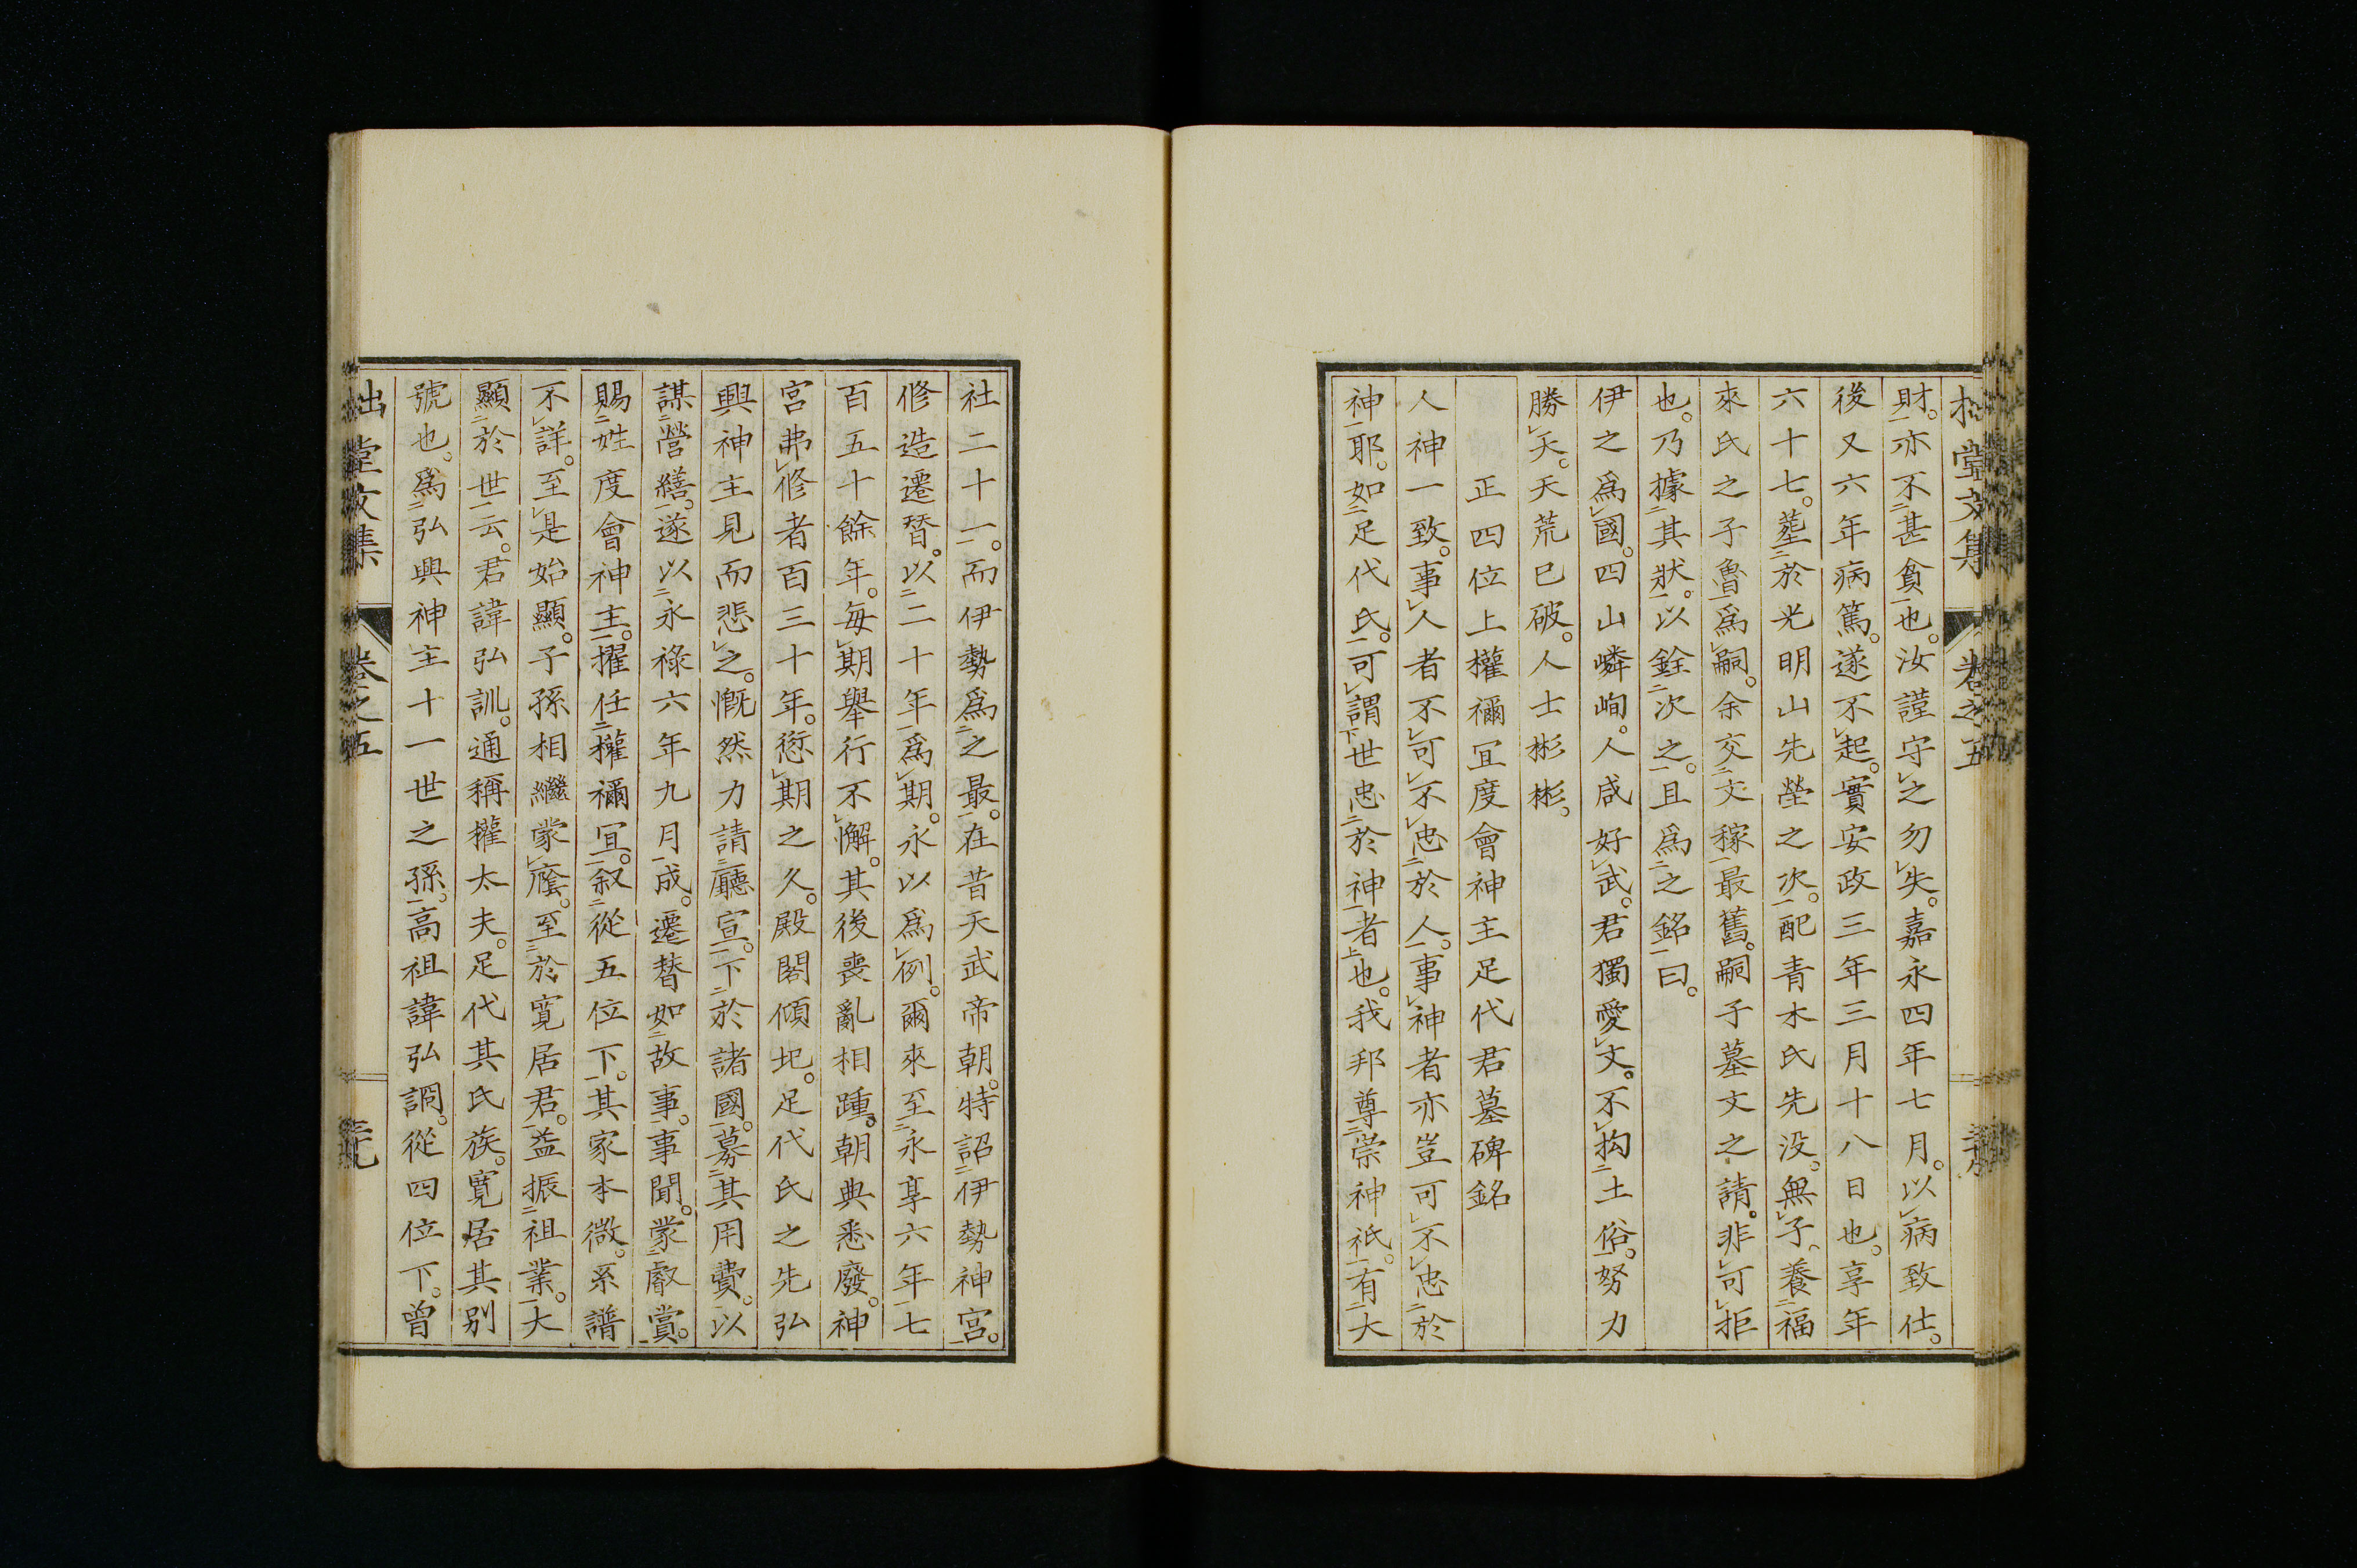 財。亦不甚貧也。汝謹守之勿失。嘉永四年七月。以病致仕。
後又六年病篤。遂不起。實安政三年三月十八日也。享年
六十七。葬於光明山先塋之次。配青木氏先没。無子、養福
來氏之子魯爲嗣。余交文稼最舊。嗣子墓文之請。非可拒
也。乃據其狀。以銓次之。且爲之銘曰。
伊之爲國。四山嶙峋。人咸好武。君獨愛文。不拘土俗。努力
勝天。天荒已破。人士彬彬。
正四位上權禰冝度會神主足代君墓碑銘
人神一致。事人者不可不忠於人。事神者亦豈可不忠於
神耶。如足代氏。可謂世忠於神者也。我邦尊崇神祇。有大
社二十一。而伊勢爲之最。在昔天武帝朝。特詔伊勢神宮。
修造遷替。以二十年爲期。永以爲例。爾來至永享六年七
百五十餘年。毎期舉行不懈。其後喪亂相踵。朝典悉廢。神
宮弗修者百三十年。愆期之久。殿閣傾圯。足代氏之先弘
興神主見而悲之。慨然力請廳宣。下於諸國。募其用費。以
謀營繕。遂以永祿六年九月成。遷替如故事。事聞。蒙叡賞。
賜姓度會神主。擢任權禰冝。叙從五位下。其家本微。系譜
不詳。至是始顯。子孫相繼蒙廕。至於寛居君。益振祖業。大
顯於世云。君諱弘訓。通稱權太夫。足代其氏族。寛居其别
號也。爲弘興神主十一世之孫。高祖諱弘調。從四位下。曾
拙堂文集 卷之五